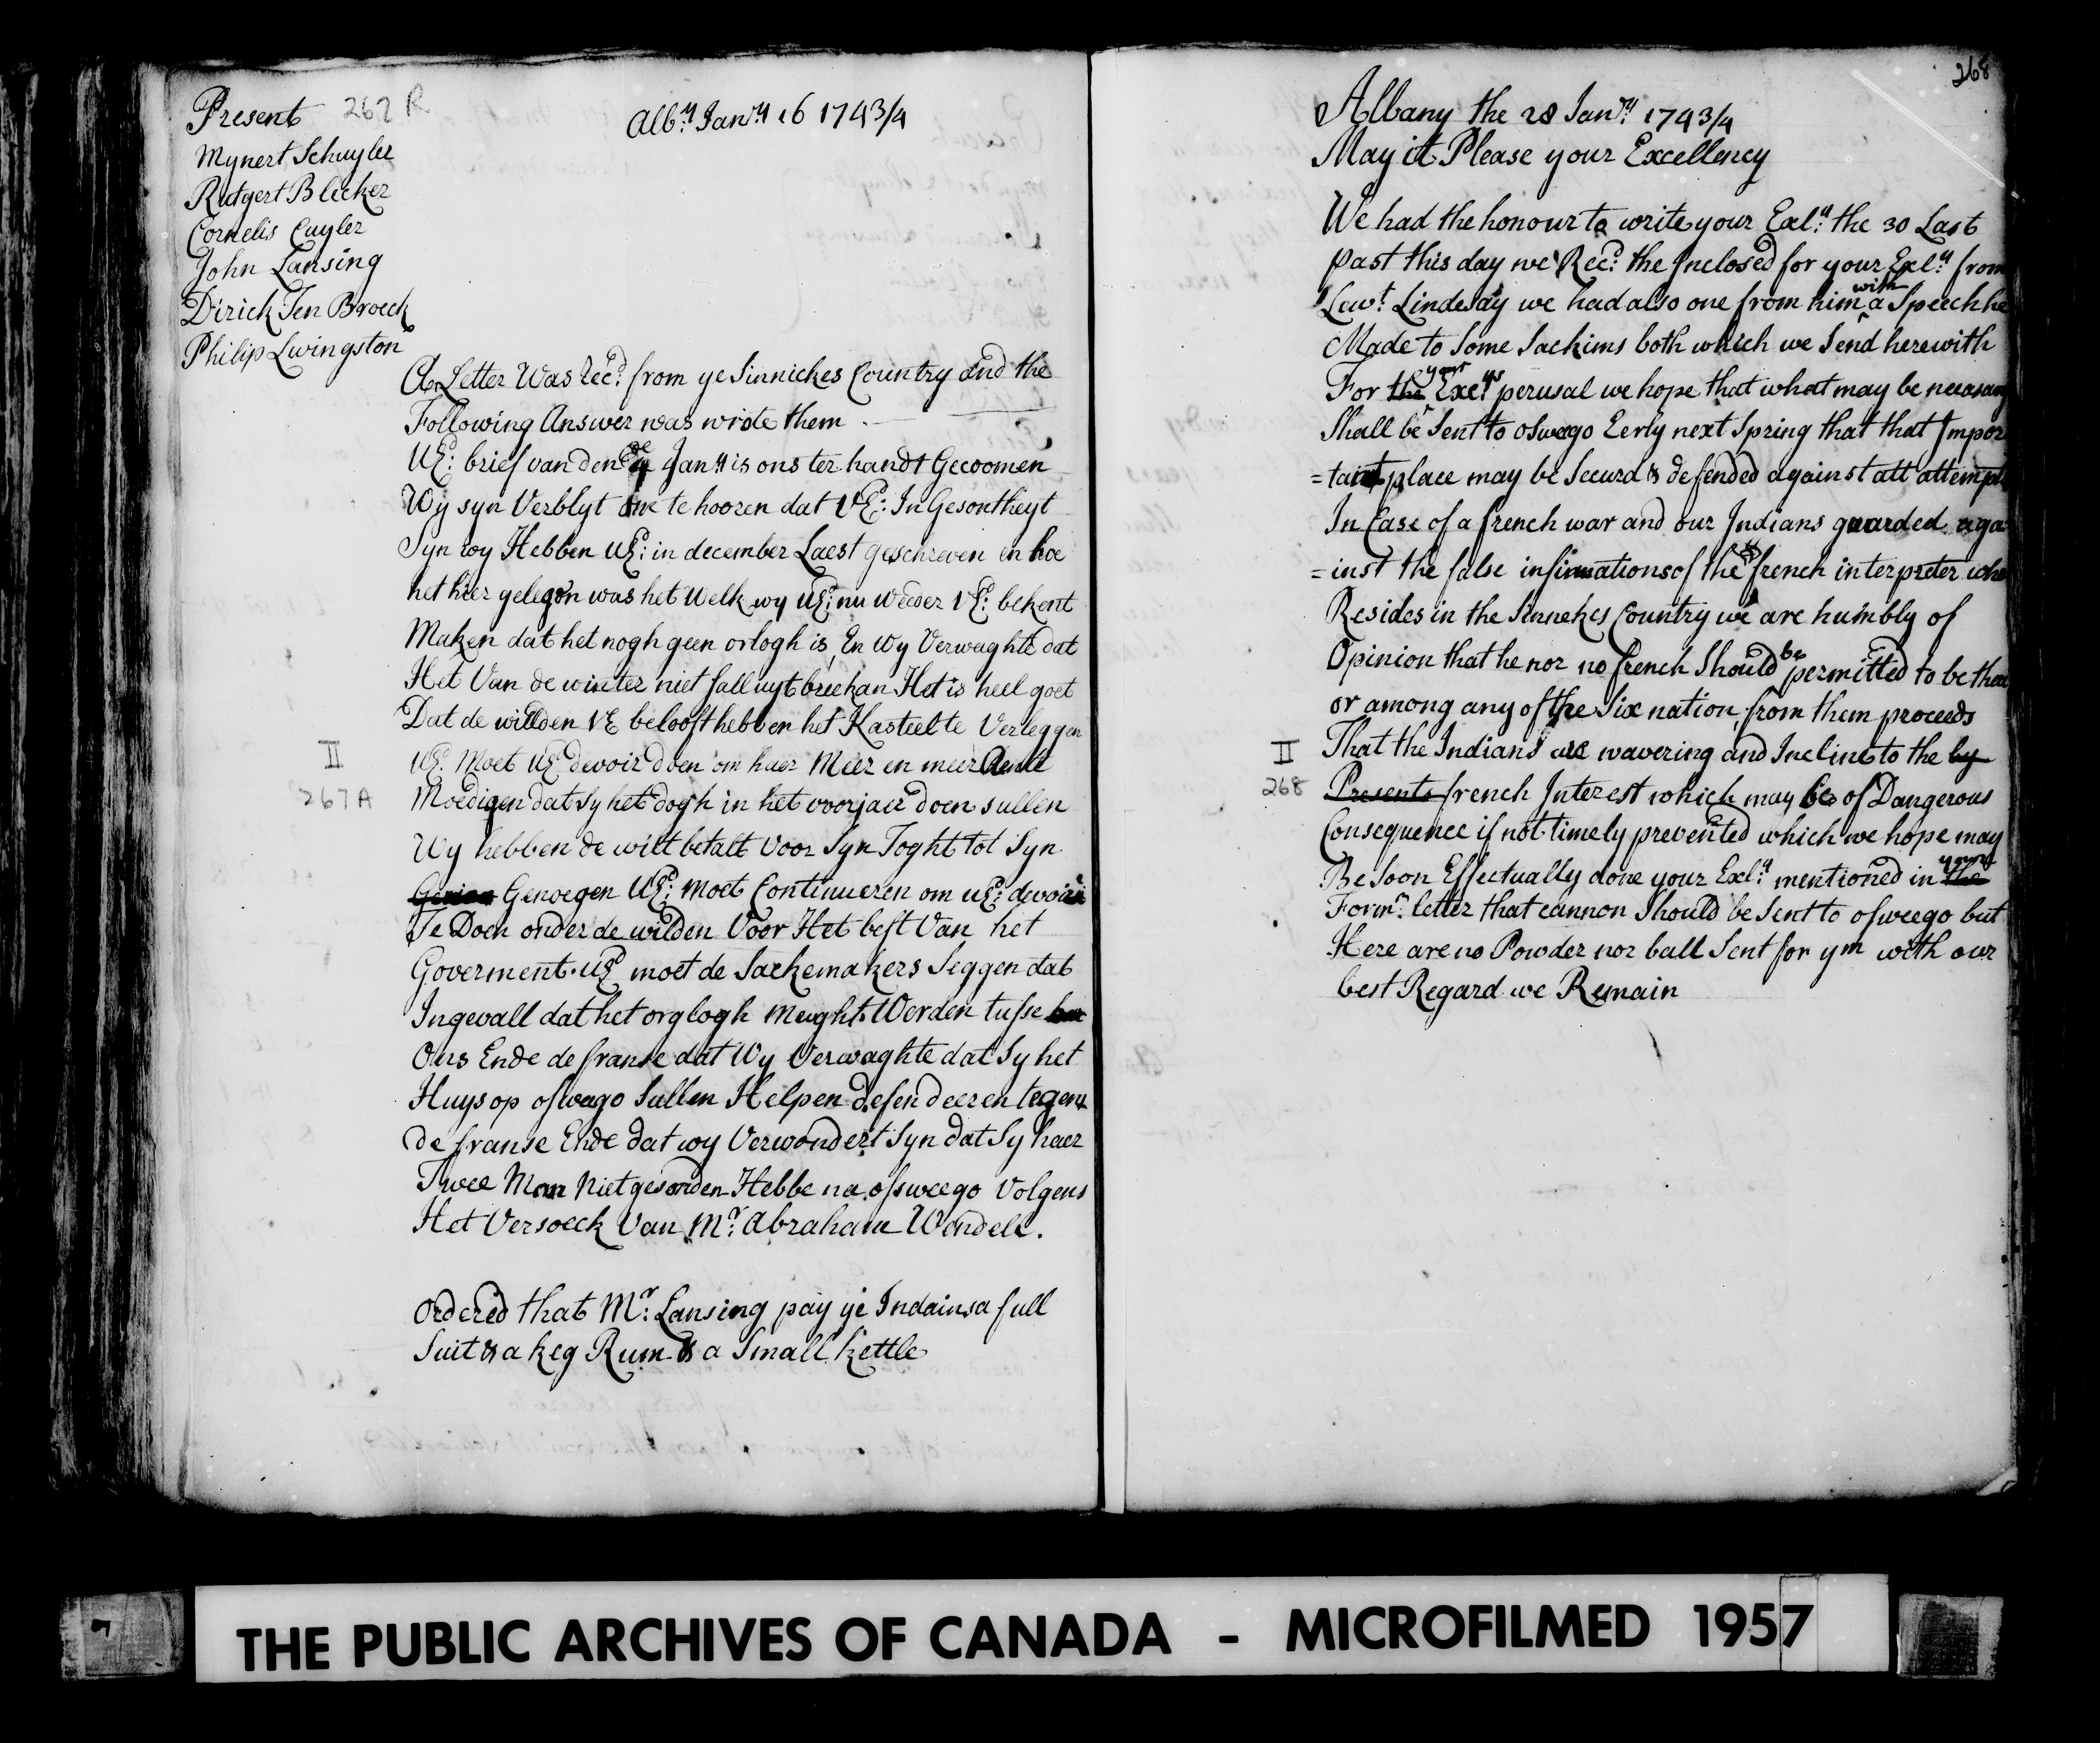 Present 267 R
Alb:y Janry 16 1743/4
Mynert Schuyler
Rutgert Bleeker
Cornelis Cuyler
John Lansing
Dirick Ten Broeck
Philip Livingston
A Letter Was Recd: from ye Sinnickes Country and the
Following Answer was wrote them
UEd: brief van den Jany is ons ter handt Gecoomen
Wy syn Verblyt te hooren dat UEd: In Gesontheyt
Syn wy Hebben UEd: in december Laest geschreven en hoe
het hier gelegen was het welk wy UEd: nu weeder UEd: bekent
Maken dat het nogh geen orlogh is En wy Verwaghte dat
Het Van de winter niet sall uyt breekan Het is heel goet
Dat de willden UE belooft hebben het Kasteel te Verleggen
UEd: Moet UEd devoir doen om haer Meer en meer
II
267 A
Moedigen dat sy het dogh in het voorjaer doen sullen
Wy hebben de wilt betalt voor Syn Toght tot Syn
Genoegen UEd: moet Continueren om UEd: devoir
Te Doen onder de wilden Voor Het best Van het
Goverment. UEd moet de Sackemakers Seggen dat
Ingevall dat het orglogh meught Werden tusse
Ons Ende de franse dat Wy Verwaghte dat Sy het
Huys op osweego Sullen Helpen defendeeren tegens
de franse Ende dat wy Verwondert Syn dat Sy haer
Twee Man Niet gesonden Hebbe na osweego Volgens
Het Versoeck Van Mr: Abraham Wendell.
Ordered that Mr: Lansing pay ye Indains a full
Suit & a keg Rum & a Small kettle
268
Albany the 28 Janry: 1743/4
May it Please your Excellency
We had the honour to write your Exly: the 30 Last
past this day we Recd: the Inclosed for your Exly: from
Leut: Lindesay we had also one from him with a Speech he
Made to Some Sachims both which we Send herewith
For the your Exeys perusal we hope that what may be necasary
Shall be Sent to osweego Eerly next Spring that that Impor
=tant place may be Secured & defended against all attempts
In Case of a french war and our Indians guarded aga
=inst the false insinuations of the french interpreter who
Resides in the Sinnekes Country we are humbly of
Opinion that he nor no french Should be permitted to be there
or among any of the Six nation from them proceeds
That the Indians are wavering and Incline to the by
II
268
Presents french Interest which may be of Dangerous
Consequence if not timely prevented which we hope may
Be Soon Effectually done your Exly: mentioned in the your
Formr: letter that cannon Should be Sent to osweego but
Here are no Powder nor ball Sent for ym with our
best Regard we Remain
THE PUBLIC ARCHIVES OF CANADA - MICROFILMED 1957